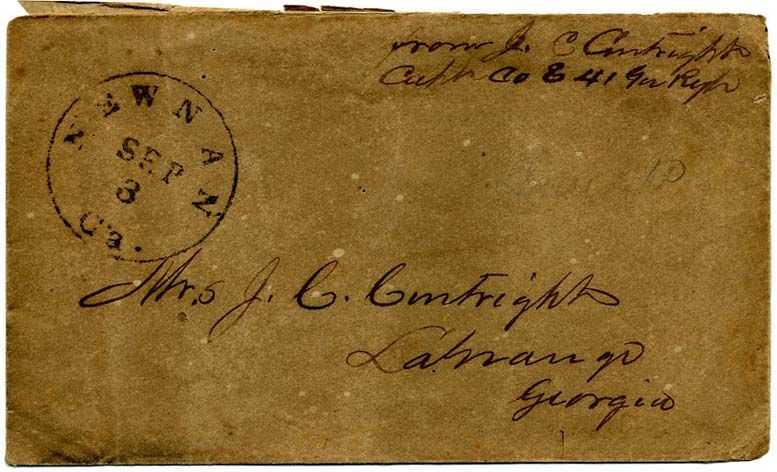 from J. C Curtright
Capt Co E 41 Ga Regt
NEWNAN
SEP
3
Ga.
Mrs J. C. Curtright
LaGrange
Georgia